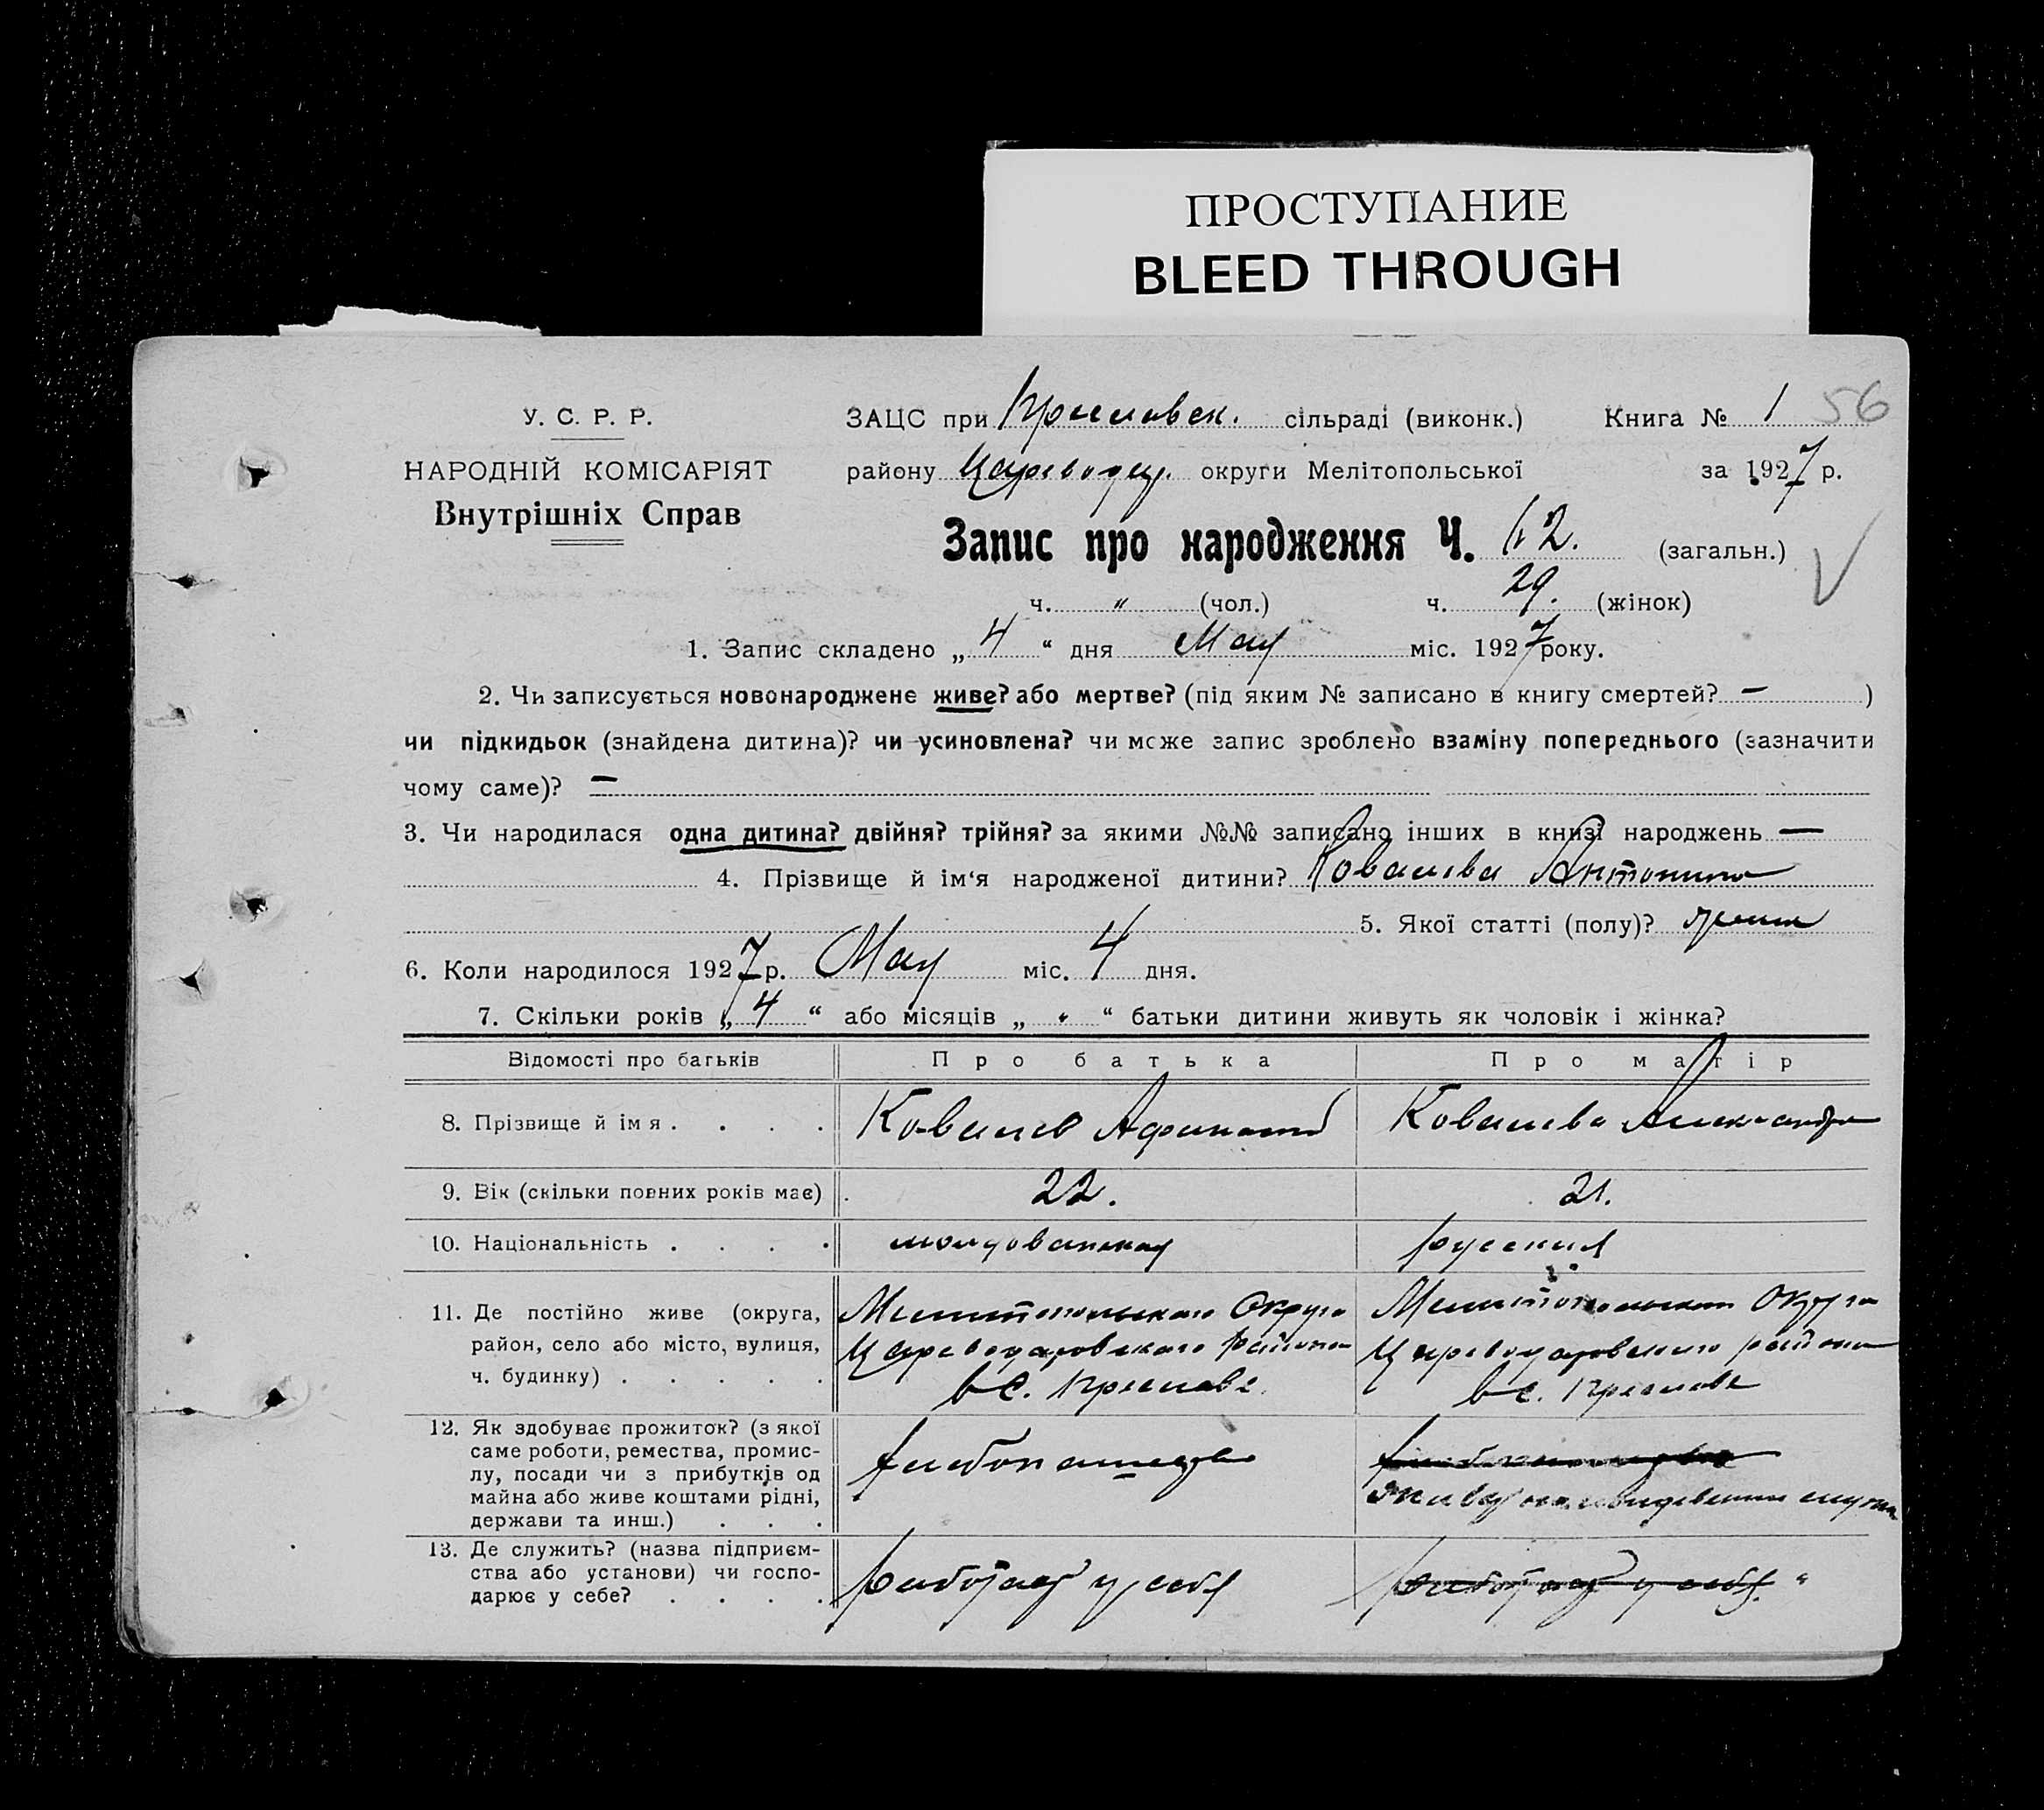 ПРОСТУПАНИЕ
BLEED THROUGH
У. С. Р. Р.
НАРОДНІЙ КОМІСАРІЯТ
Внутрішніх Справ
ЗАЦС при сільраді (виконк.) Книга № 1 56
району округи Мелітопольської за 1927 р.
Запис про народження Ч. 62. (загальн.)
ч. " (чол.) ч. 29. (жінок)
1. Запис складено „ 4 “ дня Мая міс. 1927 року.
2. Чи записується новонароджене живе? або мертве? (під яким № записано в книгу смертей? — )
чи підкидьок (знайдена дитина)? чи усиновлена? чи може запис зроблено взаміну попереднього (зазначити
чому саме)? —
3. Чи народилася одна дитина? двійня? трійня? за якими №№ записано інших в книзі народжень —
4. Прізвище й ім‘я народженої дитини? Ковалева Антонина
5. Якої статті (полу)? женск
6. Коли народилося 1927 р. Мая міс. 4 дня.
7. Скільки років „ 4 “ або місяців „ “ батьки дитини живуть як чоловік і жінка?
Відомості про батьків Про батька Про матір
8. Прізвище й ім я . . . . Ковалев Афанасий Ковалева Александра
9. Вік (скільки повних років має) 22. 21.
10. Національність . . . . молдованская русская
11. Де постійно живе (округа, район, село або місто, вулиця, ч. будинку) . . . . .
Мелитопольского Округа Мелитопольского Округа
Цареводаровского района Цареводаровского района
в с. в с.
12. Як здобуває прожиток? (з якої
саме роботи, ремества, промис-
лу, посади чи з прибутків од
майна або живе коштами рідні,
держави та инш.) . . .
хлебопашество
живет на иждевении мужа
13. Де служить? (назва підприєм-
ства або установи) чи госпо-
дарює у себе? . . . .
работает у себя работает у себя "